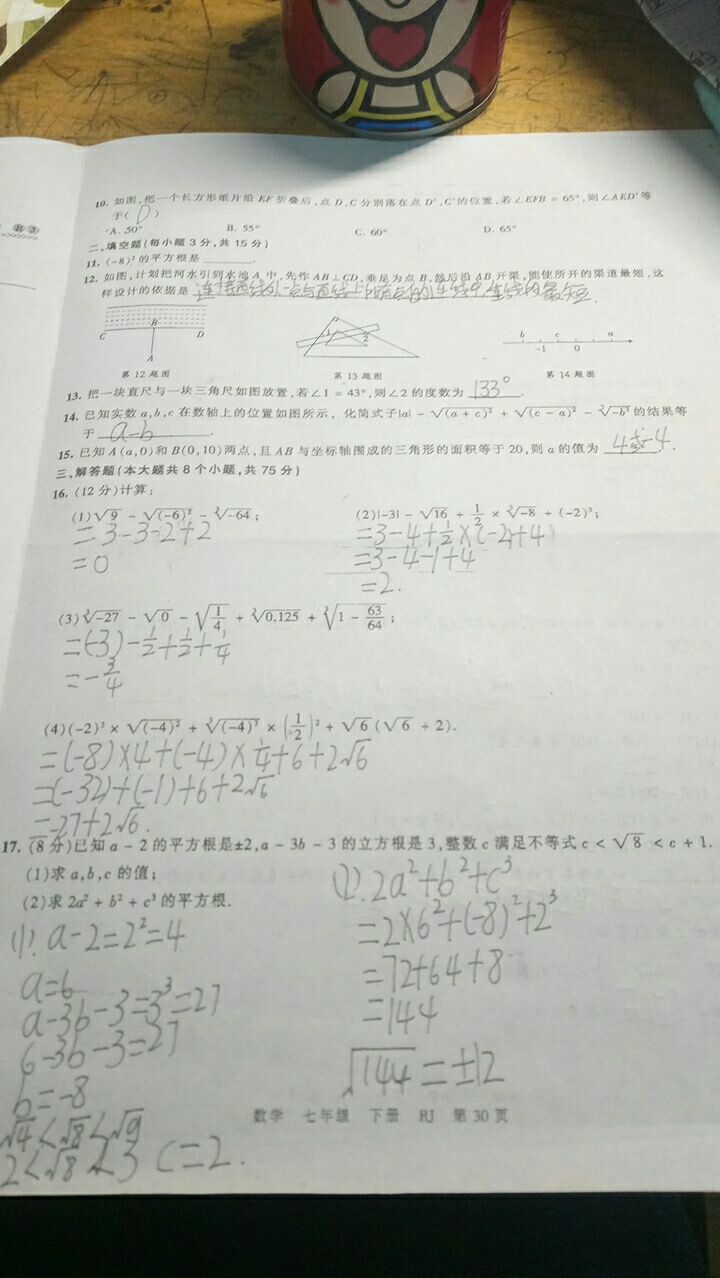 10. 如图,把一个长方形纸片沿 EF 折叠后,点 D,C 分别落在点 D',C'的位置,若∠EFB = 65°,则∠AED'等
于( D )
A. 50° B. 55° C. 60° D. 65°
二、填空题(每小题 3 分,共 15 分)
11. (-8)²的平方根是
12. 如图,计划把河水引到水池 A 中,先作 AB⊥CD,垂足为点 B,然后沿 AB 开渠,能使所开的渠道最短,这
样设计的依据是 连接直线外一点与直线上所有点的连线中,垂线段最短.
C B D A
1 2
b c a
-1 0
第 12 题图 第 13 题图 第 14 题图
13. 把一块直尺与一块三角尺如图放置,若∠1 = 43°,则∠2 的度数为 133°.
14. 已知实数 a,b,c 在数轴上的位置如图所示,化简式子|a| - √(a + c)² + √(c - a)² - ∛-b³的结果等
于 a-b.
15. 已知 A(a,0)和 B(0,10)两点,且 AB 与坐标轴围成的三角形的面积等于 20,则 a 的值为 4或-4.
三、解答题(本大题共 8 个小题,共 75 分)
16. (12 分)计算:
(1)√9 - √(-6)² - ∛-64;
=3-3-2+2
=0
(2)|-3| - √16 + 1/2 × ∛-8 + (-2)²;
=3-4+1/2×(-2+4)
=3-4-1+4
=2.
(3)∛-27 - √0 - √1/4 + ∛0.125 + ∛1 - 63/64;
=(-3)-1/2+1/2+1/4
=-3/4
(4)(-2)³ × √(-4)² + ∛(-4)³ × (1/2)² + √6(√6 + 2).
=(-8)×4+(-4)×1/4+6+2√6
=(-32)+(-1)+6+2√6
=-27+2√6.
17. (8 分)已知 a - 2 的平方根是±2,a - 3b - 3 的立方根是 3,整数 c 满足不等式 c < √8 < c + 1.
(1)求 a,b,c 的值;
(2)求 2a² + b² + c³ 的平方根.
(1). a-2=2²=4
a=6
a-3b-3=3³=27
6-3b-3=27
b=-8
√4<√8<√9
2<√8<3 c=2.
(2). 2a²+b²+c³
=2×6²+(-8)²+2³
=72+64+8
=144
√144=±12
数学 七年级 下册 RJ 第 30 页